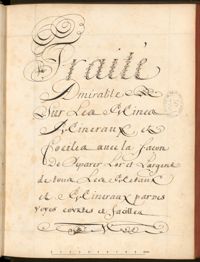 Traité
Admirable De
Sur Les Mines
Mineraux et
Fossiles avec la façon
De Separer Lor et Largent
de tous Les Metaux
et Mineraux par des
voyes courtes et faciles